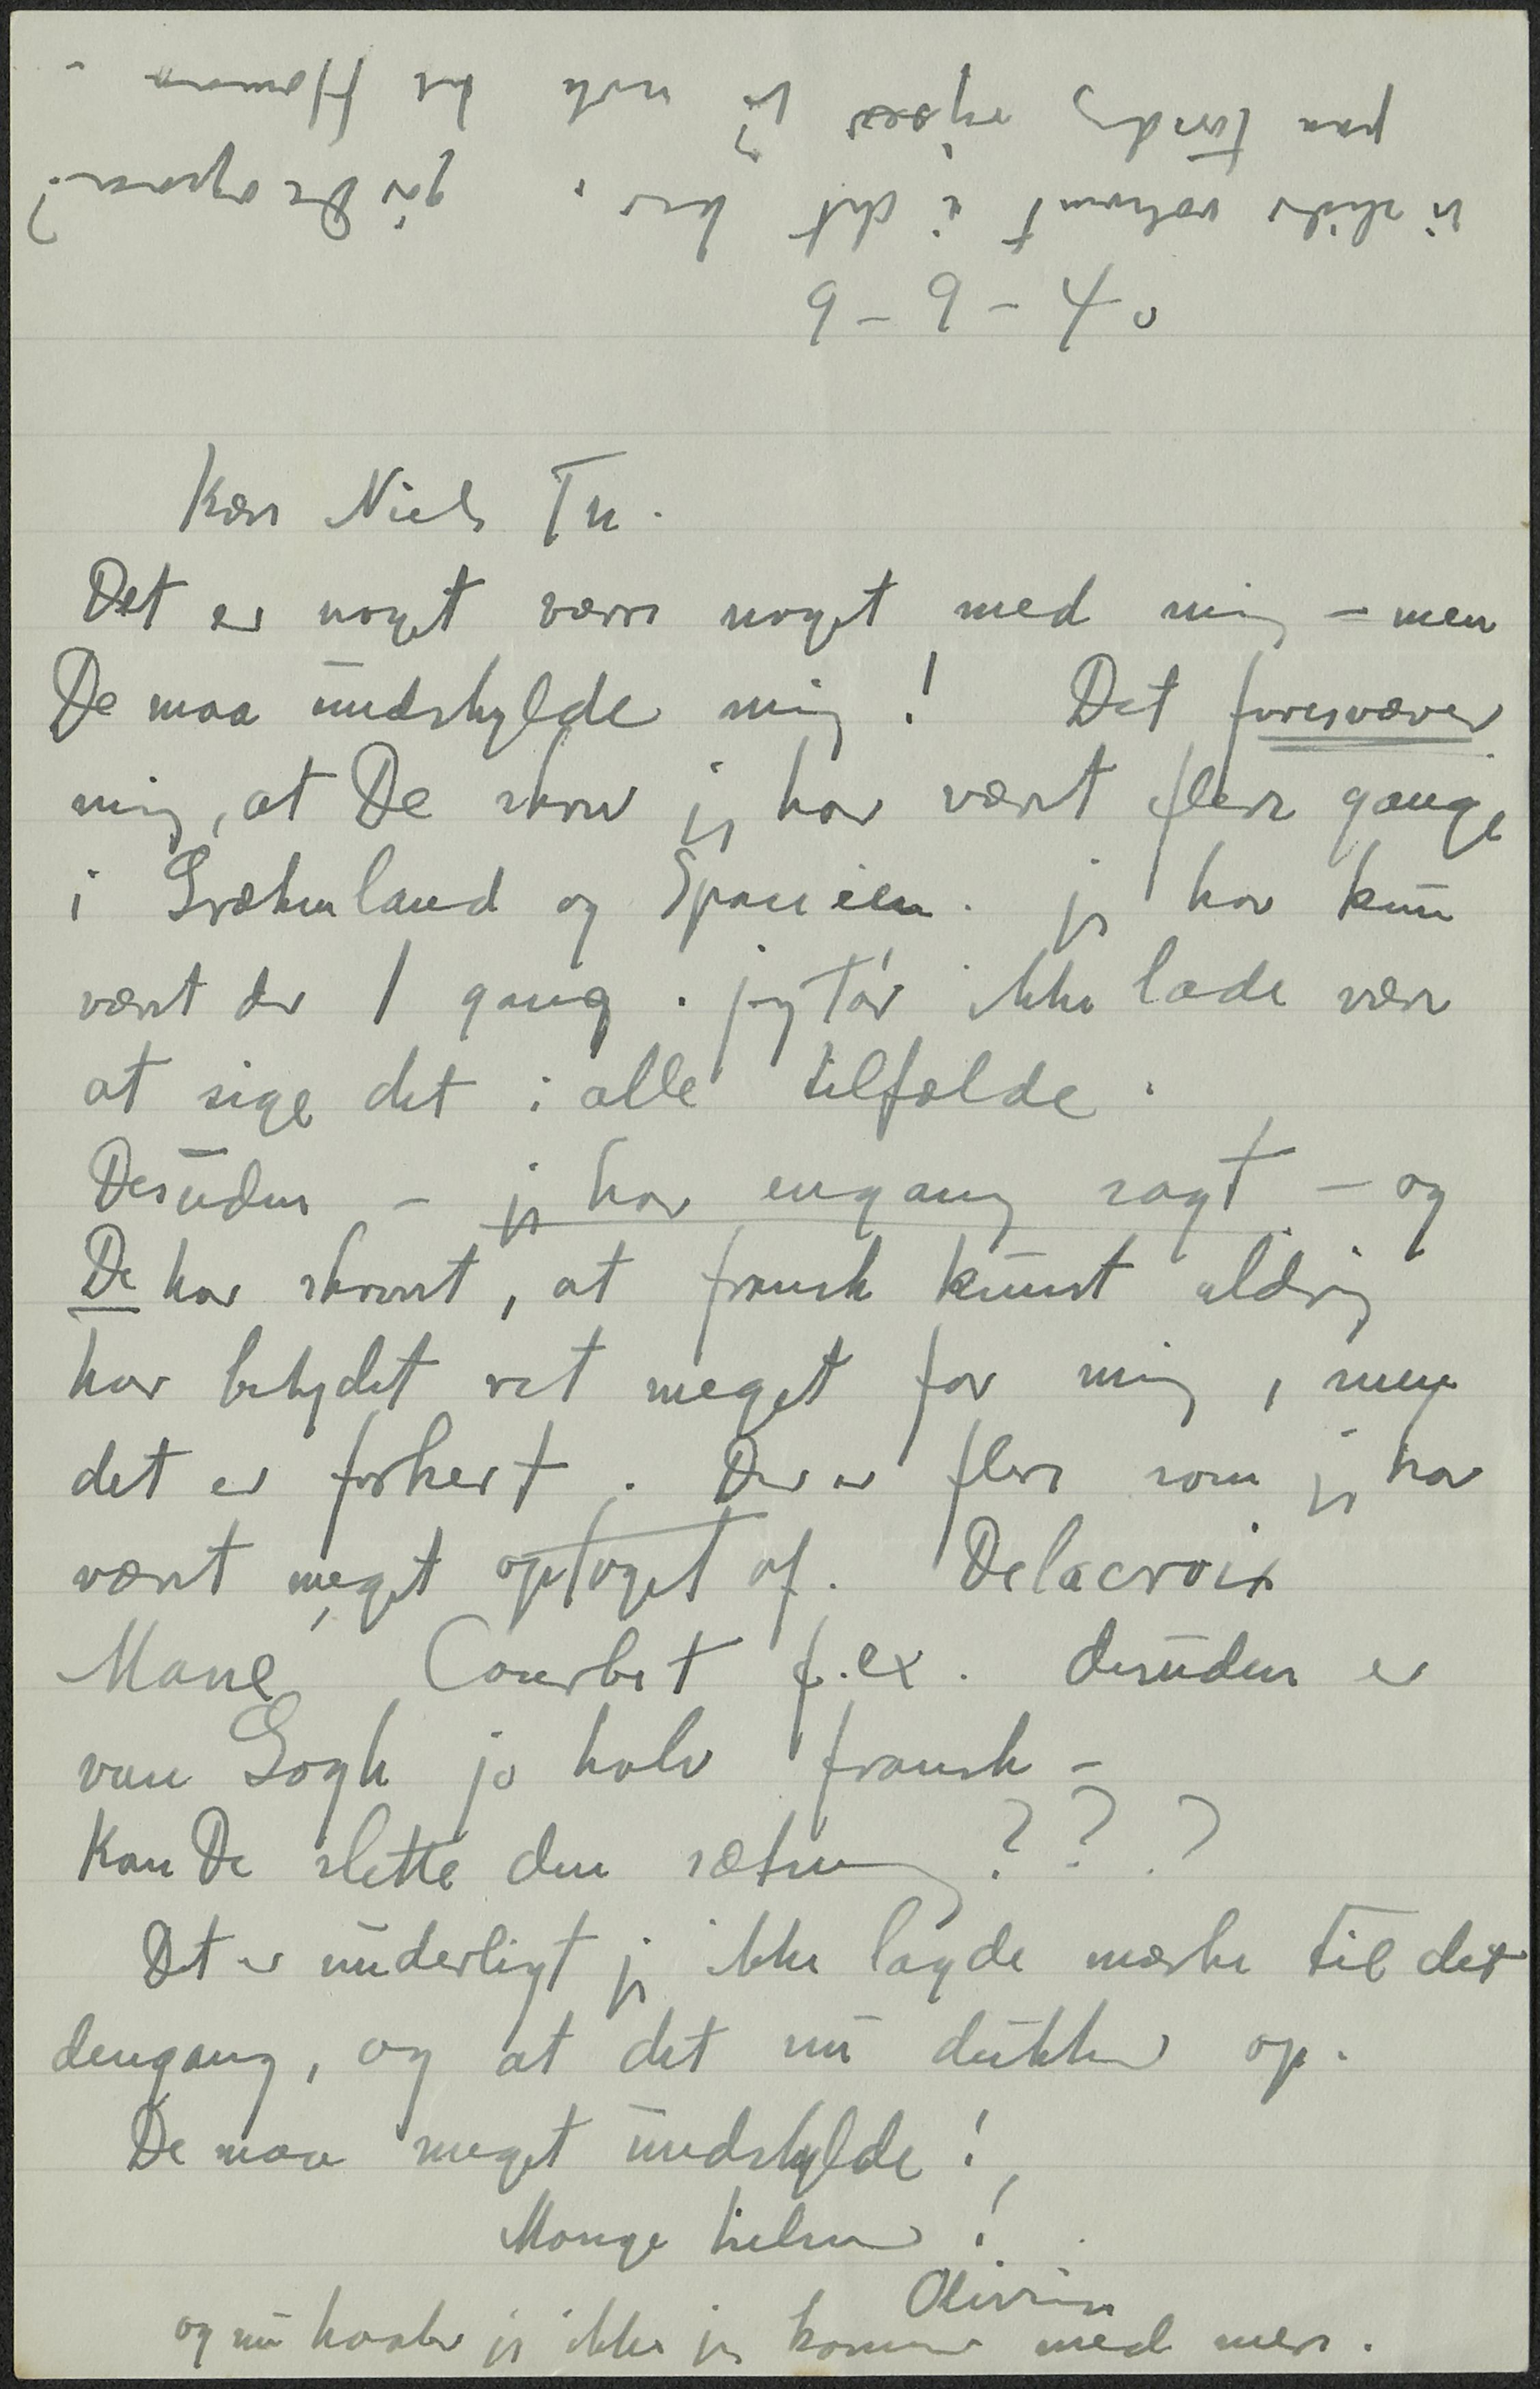 Kære Niels Th.
Det er noget værre noget med mig – men
De maa undskylde mig! Det foresvæver
mig, at De skrev jeg har været flere gange
i Grækenland og Spanien. jeg har kun
været der 1 gang. jeg tør ikke lade være
at sige det i alle tilfælde.
Desuden – jeg har engang sagt – og
De har skrevet, at fransk kunst aldrig
har betydet ret meget for mig, men
det er forkert. Der er flere som jeg har
været meget optaget af. Delacroix
Mane, Courbet f.ex. desuden er
van Gogh jo halv fransk –
Kan De slette den sætning ? ? ?
Det er underligt jeg ikke lagde mærke til det
dengang, og at det nu dukker op.
De maa meget undskylde!
Mange hilsner!
Olivia
og nu haaber jeg ikke jeg kommer med mere.
6 – 6 – 40
vi slider voldsomt i det her. gør De ogsaa?
paa tirsdag rejser vi ned til